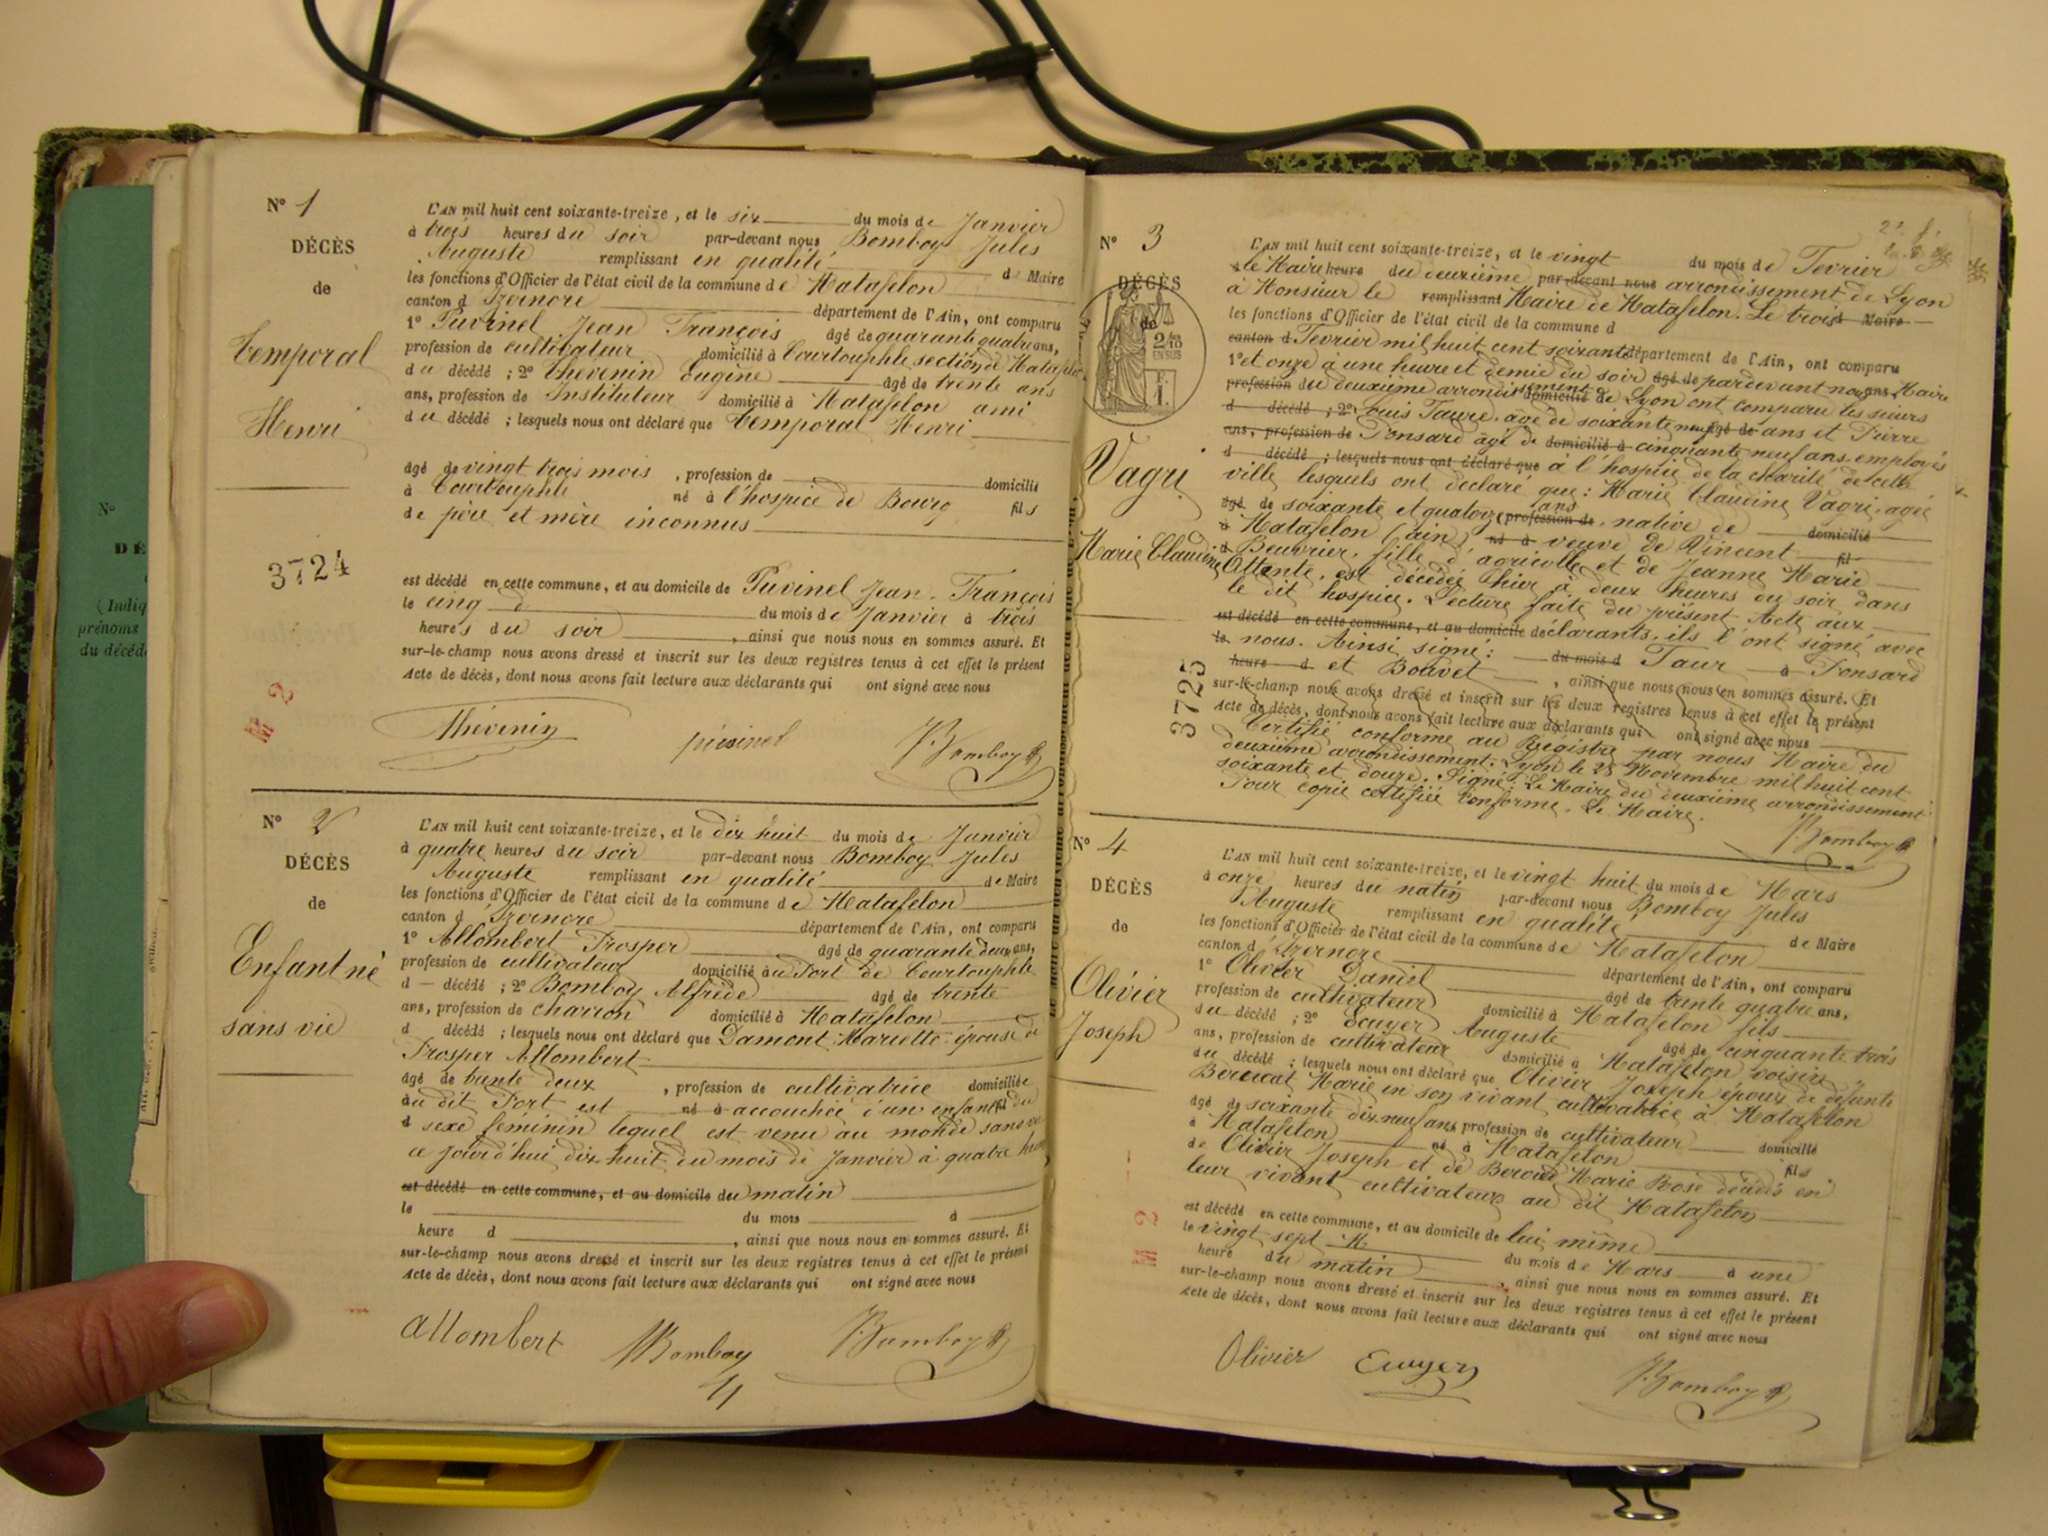 N° 1
DÉCÈS
de
Temporal
Henri
3724
M 2
L'AN mil huit cent soixante-treize, et le six du mois de Janvier
à trois heures du soir par-devant nous Bomboy Jules
Auguste remplissant en qualité de Maire
les fonctions d'Officier de l'état civil de la commune de Matafelon
canton d'Izernore département de l'Ain, ont comparu
1° Puvinel Jean François âgé de quarante quatre ans,
profession de cultivateur domicilié à Courtouphle section de Matafelon
du décédé ; 2° Thevenin Eugène âgé de trente ans
ans, profession de Instituteur domicilié à Matafelon ami
du décédé ; lesquels nous ont déclaré que Temporal Henri
âgé de vingt trois mois, profession de domicilié
à Courtouphle né à l'hospice de Bourg fils
de père et mère inconnus
est décédé en cette commune, et au domicile de Puvinel Jean François
le cinq d du mois de Janvier à trois
heures du soir, ainsi que nous nous en sommes assuré. Et
sur-le-champ nous avons dressé et inscrit sur les deux registres tenus à cet effet le présent
Acte de décès, dont nous avons fait lecture aux déclarants qui ont signé avec nous
Thévenin Bomboy
N° 2
DÉCÈS
de
Enfant né
sans vie
L'AN mil huit cent soixante-treize, et le dix huit du mois de Janvier
à quatre heures du soir par-devant nous Bomboy Jules
Auguste remplissant en qualité de Maire
les fonctions d'Officier de l'état civil de la commune de Matafelon
canton d'Izernore département de l'Ain, ont comparu
1° Allombert Prosper âgé de quarante deux ans,
profession de cultivateur domicilié au Port de Courtouphle
d décédé ; 2° Bomboy Alfrède âgé de trente
ans, profession de charron domicilié à Matafelon
d décédé ; lesquels nous ont déclaré que Damont Mariette épouse de
Prosper Allombert
âgé de trente deux, profession de cultivatrice domiciliée
au dit Port est né à accouchée d'un enfant fil du
d sexe féminin lequel est venu au monde sans vie
ce jourd'hui dix-huit du mois de Janvier à quatre heures
est décédé en cette commune, et au domicile du matin
le du mois à
heure d, ainsi que nous nous en sommes assuré. Et
sur-le-champ nous avons dressé et inscrit sur les deux registres tenus à cet effet le présent
Acte de décès, dont nous avons fait lecture aux déclarants qui ont signé avec nous
allombert Bomboy Bomboy
N° 3
DÉCÈS
de
2/10
EN SUS
Vagri
Marie Claudine
3725
L'AN mil huit cent soixante-treize, et le vingt du mois de Fevrier
le Maire heure du deuxième par-devant nous arrondissement de Lyon
à Monsieur le remplissant Maire de Matafelon. Le trois d Maire
les fonctions d'Officier de l'état civil de la commune d
canton d Fevrier mil huit cent soixante département de l'Ain, ont comparu
1° et onze à une heure et demie du soir âgé de pardevant nous ans, Maire
profession du deuxième arrondissement domicilié de Lyon ont comparu les sieurs
d décédé ; 2° Louis Faure, âgé de soixante neuf âgé de ans et Pierre
ans, profession de Ponsard âgé de domicilié à cinquante neuf ans employés
d décédé ; lesquels nous ont déclaré que à l'hospice de la charité de cette
ville lesquels ont déclaré que : Marie Claudine Vagri, agée
âgé de soixante et quatorze ans profession de, native de domicilié
à Matafelon (ain) né à veuve de Vincent fil
d Beuvrier, fille d'agricolle et de Jeanne Marie
Ottente, est décédée hier à deux heures du soir dans
le dit hospice. Lecture faite du présent Acte aux
est décédé en cette commune, et au domicile déclarants, ils l'ont signé avec
le nous. Ainsi signé : du mois d Faur à Ponsard
heure d et Bouvet, ainsi que nous nous en sommes assuré. Et
sur-le-champ nous avons dressé et inscrit sur les deux registres tenus à cet effet le présent
Acte de décès, dont nous avons fait lecture aux déclarants qui ont signé avec nous
Certifié conforme au Régistre par nous Maire du
deuxième arrondissement : Lyon le 25 Novembre mil huit cent
soixante et douze. Signé : Le Maire du deuxième arrondissement
Pour copie certifiée conforme. Le Maire.
Bomboy
N° 4
DÉCÈS
de
Olivier
Joseph
M 2
L'AN mil huit cent soixante-treize, et le vingt huit du mois de Mars
à onze heures du matin par-devant nous Bomboy Jules
Auguste remplissant en qualité de Maire
les fonctions d'Officier de l'état civil de la commune de Matafelon
canton d'Izernore département de l'Ain, ont comparu
1° Olivier Daniel âgé de trente quatre ans,
profession de cultivateur domicilié à Matafelon fils
du décédé ; 2° Ecuyer Auguste âgé de cinquante trois
ans, profession de cultivateur domicilié à Matafelon voisin
du décédé ; lesquels nous ont déclaré que Olivier Joseph époux de défunte
Marie en son vivant cultivatrice à Matafelon
âgé de soixante dix neuf ans, profession de cultivateur domicilié
à Matafelon né à Matafelon fils
de Olivier Joseph et de Marie Rose décédés en
leur vivant cultivateurs au dit Matafelon
est décédé en cette commune, et au domicile de lui même
le vingt sept du mois de Mars à une
heure du matin, ainsi que nous nous en sommes assuré. Et
sur-le-champ nous avons dressé et inscrit sur les deux registres tenus à cet effet le présent
Acte de décès, dont nous avons fait lecture aux déclarants qui ont signé avec nous
Olivier Ecuyer Bomboy